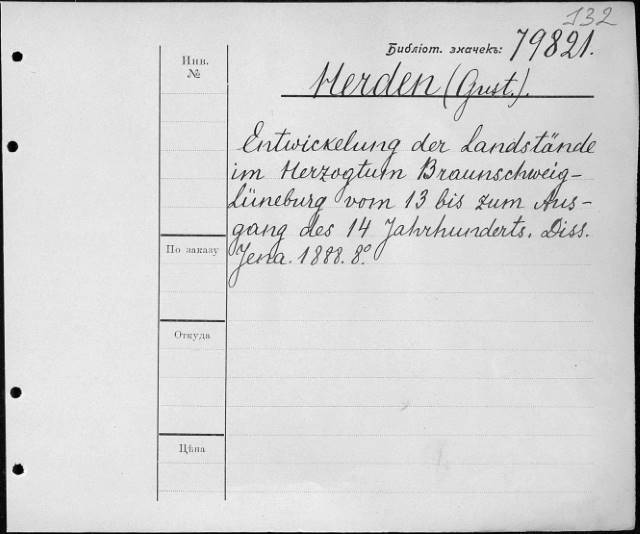 132
Библіот. значекъ: 79821.
Инв.
№
Herden (Gust.).
Entwickelung der Landstände
im Herzogtum Braunschweig-
Lüneburg vom 13 bis zum Aus-
gang des 14 Jahrhunderts. Diss.
Jena. 1888. 8º
По заказу
Откуда
Цѣна